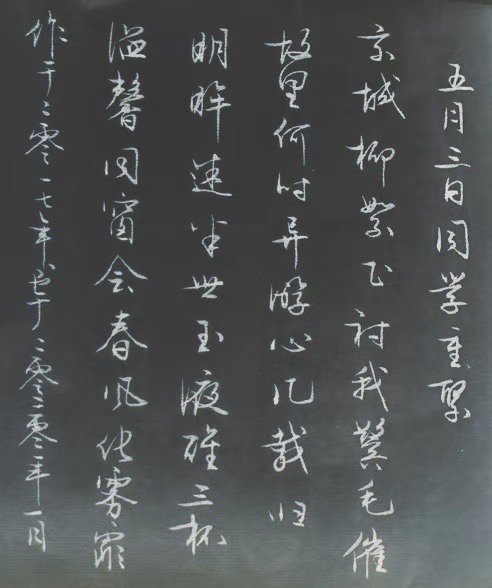 五月三日同学重聚
京城柳絮飞衬我鬓毛催
故里何时异游心几载归
明眸迷半世玉液醉三杯
溢馨同窗会春风化雾霏
作于二零一七年书于二零二零年一月